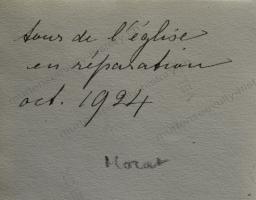 tour de l'église
en réparation
oct. 1924
Morat